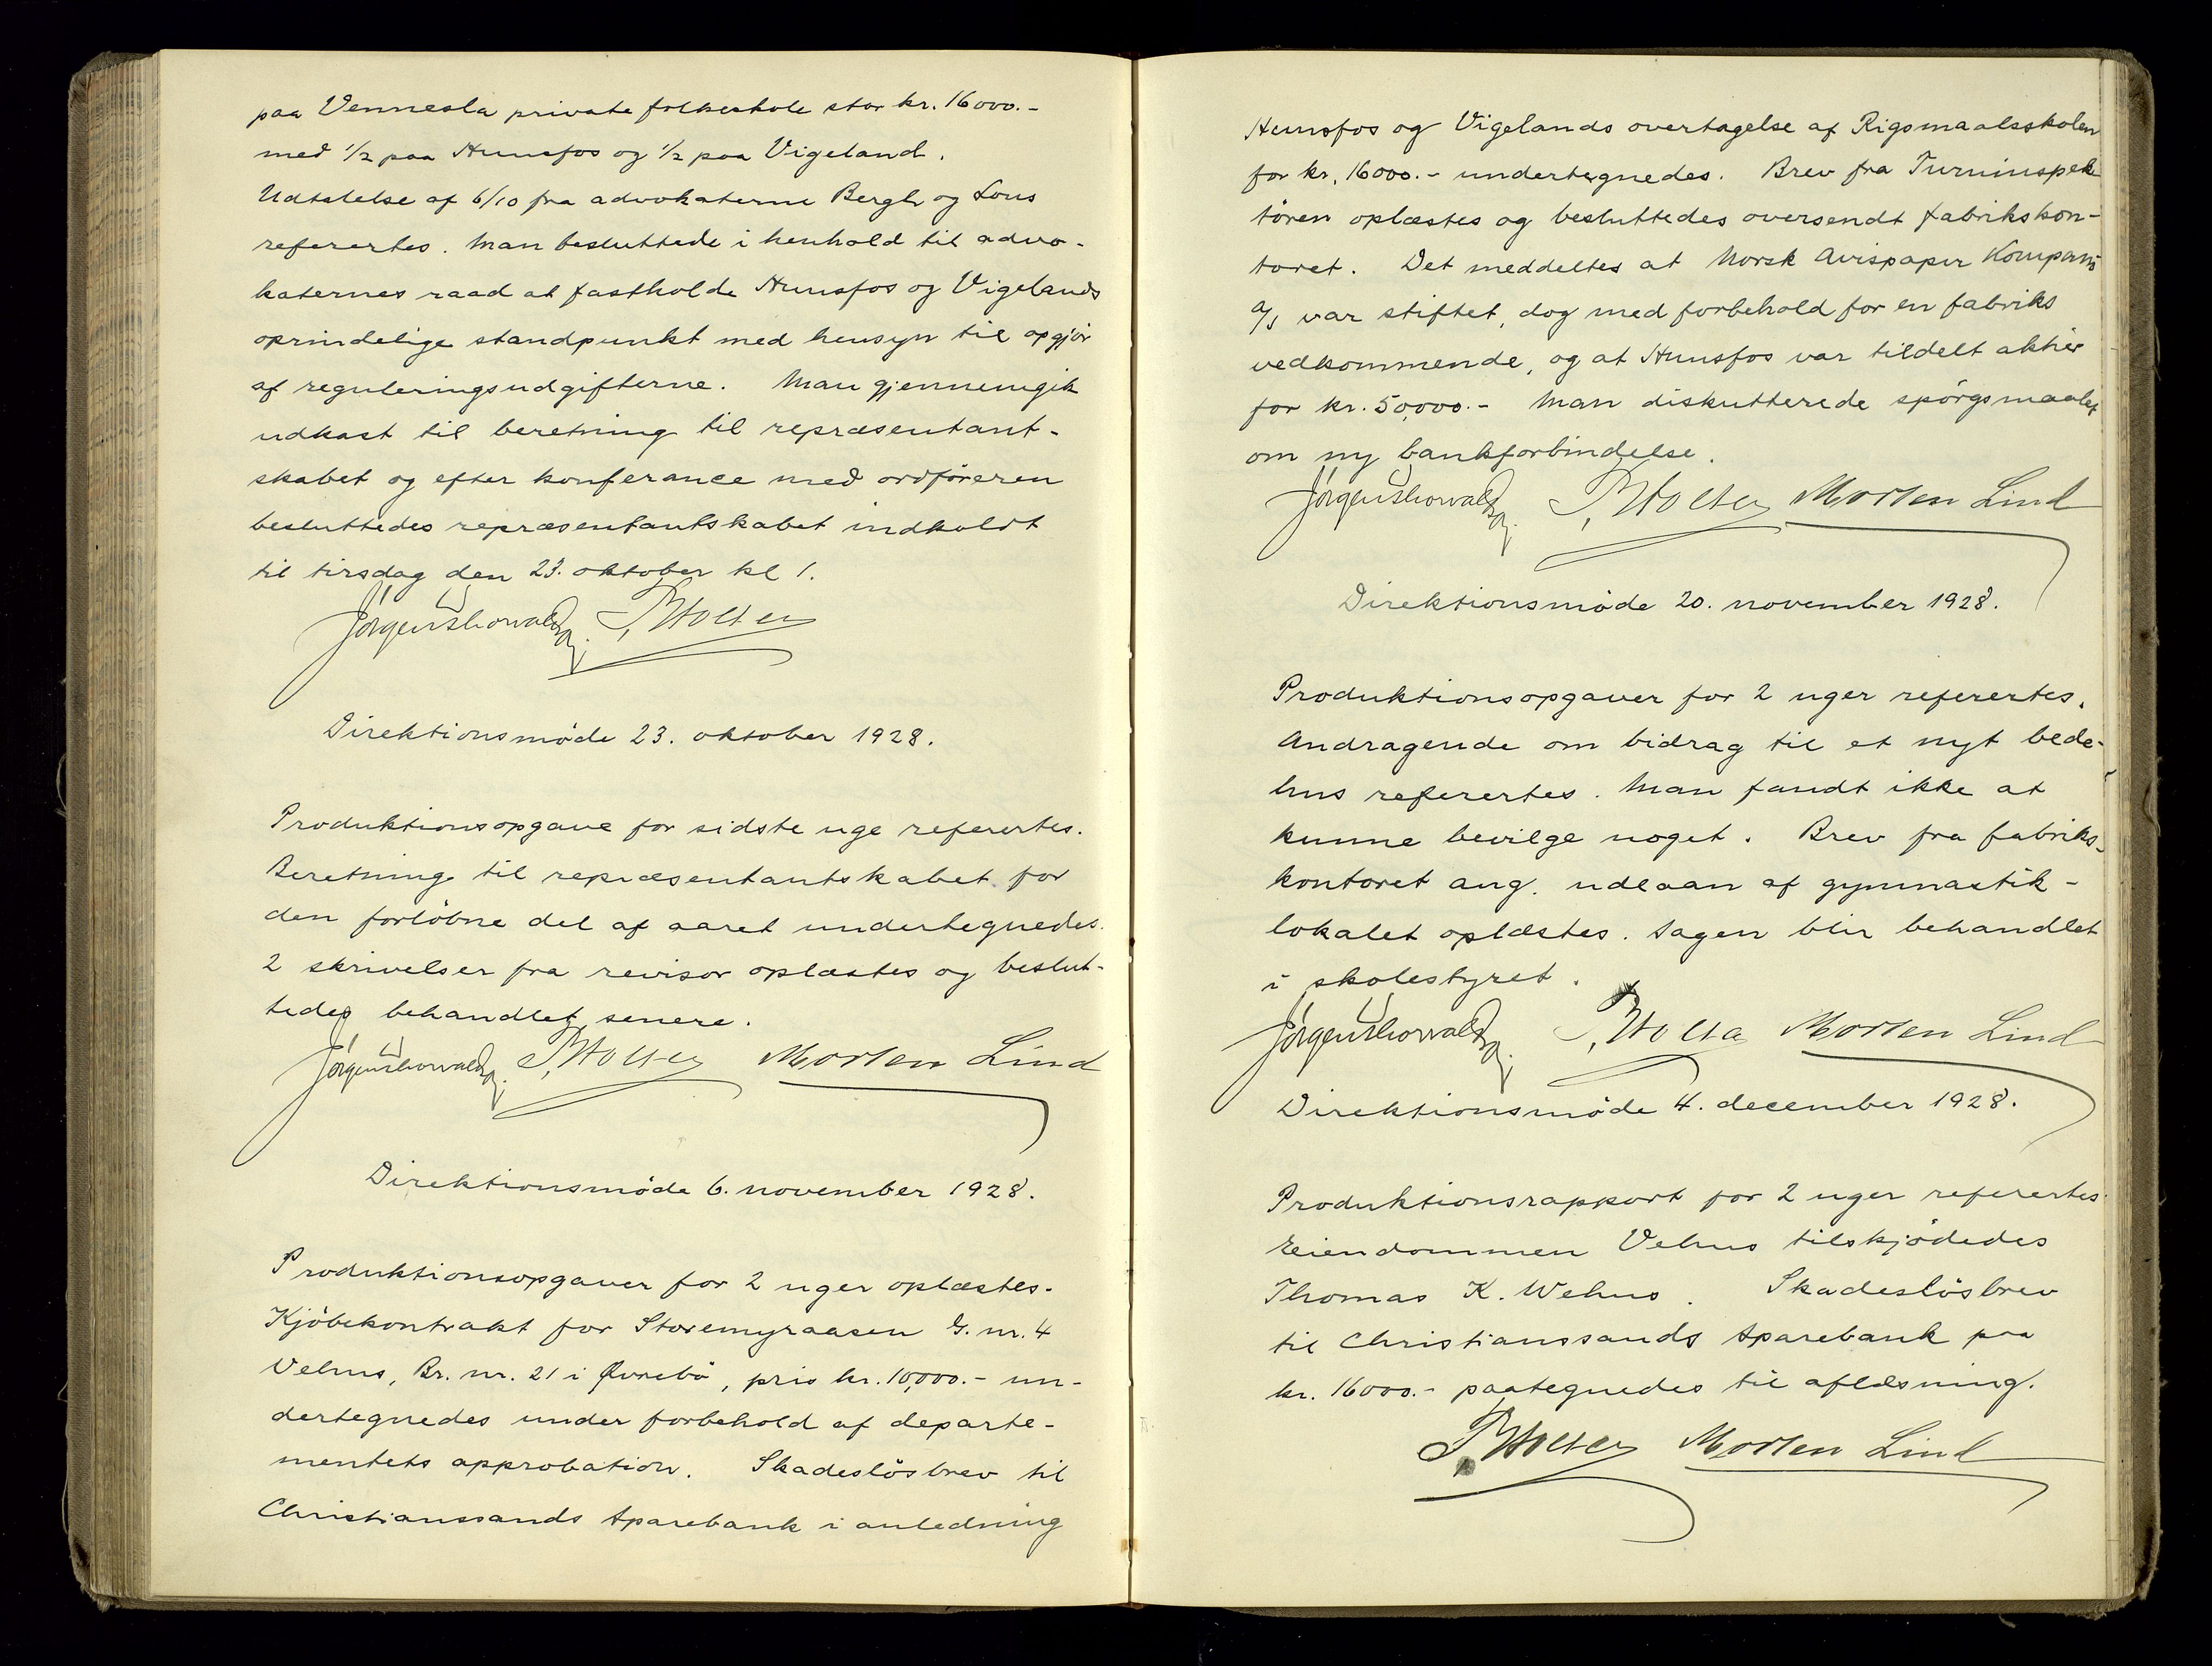 paa Vennesla private folkeskole stor kr. 16000.-
med 1/2 paa Hunsfos og 1/2 paa Vigeland.
Udtalelse af 6/10 fra advokaterne Bergh og Lous
referertes. Man besluttede i henhold til advo-
katernes raad at fastholde Hunsfos og Vigelands
oprindelige standpunkt med hensyn til opgjör
af reguleringsudgifterne. Man gjennemgik
udkast til beretning til repræsentant-
skabet og efter konferance med ordföreren
besluttedes repræsentantskabet indkaldt
til tirsdag den 23. oktober kl 1.
Direktionsmöde 23. oktober 1928.
Produktionsopgave for sidste uge referertes.
Beretning til repræsentantskabet for
den forløbne del af aaret undertegnedes.
2 skrivelser fra revisor oplæstes og beslut-
tedes behandlet senere.
Morten Lind
Direktionsmöde 6. november 1928.
Produktionsopgaver for 2 uger oplæstes.
Kjöbekontrakt for Storemyraasen G. nr. 4
Vehus, Br. nr. 21 i Øvrebö, pris kr. 10,000.- un-
dertegnedes under forbehold af departe-
mentets approbation. Skadeslösbrev til
Christianssands Sparebank i anledning
Hunsfos og Vigelands overtagelse af Rigsmaalsskolen
for kr. 16000.- undertegnedes. Brev fra Turninspek
tören oplæstes og besluttedes oversendt fabrikskon-
toret. Det meddeltes at Norsk Avispapir Kompani
A/S var stiftet, dog med forbehold for en fabriks
vedkommende, og at Hunsfos var tildelt aktier
for kr. 50,000.- Man diskutterede spörgsmaalet
om ny bankforbindelse.
Morten Lind
Direktionsmöde 20. november 1928.
Produktionsopgaver for 2 uger referertes.
Andragende om bidrag til et nyt bede-
hus referertes. Man fandt ikke at
kunne bevilge noget. Brev fra fabriks-
kontoret ang. udlaan af gymnastik-
lokalet oplæstes. Sagen blir behandlet
i skolestyret.
Morten Lind
Direktionsmöde 4. december 1928.
Produktionsrapport for 2 uger referertes
Eiendommen Vehus tilskjödedes
Thomas K. Wehus. Skadeslösbrev
til Christianssands Sparebank paa
kr. 16000.- paategnedes til aflæsning.
Morten Lind